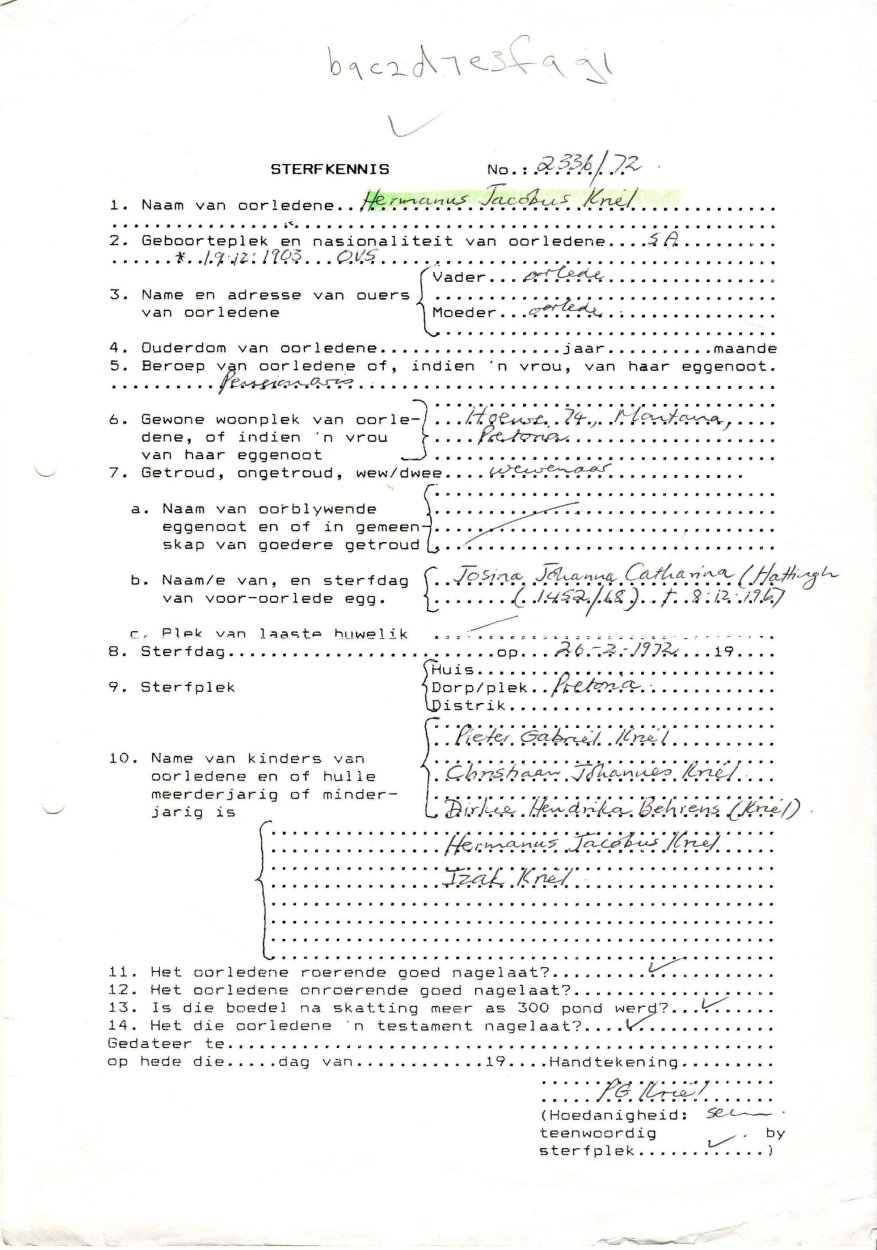 b9c2d7e3f9g1
STERFKENNIS No.: 2336/72
1. Naam van oorledene..Hermanus Jacobus Kriel
2. Geboorteplek en nasionaliteit van oorledene....SA
* 19.12.1903...OVS
3. Name en adresse van ouers van oorledene
Vader...oorlede
Moeder...oorlede
4. Ouderdom van oorledene.................jaar..........maande
5. Beroep van oorledene of, indien 'n vrou, van haar eggenoot.
Pensionaris
6. Gewone woonplek van oorle-
dene, of indien 'n vrou
van haar eggenoot
Hoewe 74, Montana,
Pretoria
7. Getroud, ongetroud, wew/dwee....wewenaar
a. Naam van oorblywende
eggenoot en of in gemeen-
skap van goedere getroud
b. Naam/e van, en sterfdag
van voor-oorlede egg.
Josina Johanna Catharina (Hattingh
(1452/68) † 8.12.1967
c. Plek van laaste huwelik
8. Sterfdag..........................op...26.-2-1972....19....
9. Sterfplek
Huis
Dorp/plek..Pretoria
Distrik
10. Name van kinders van
oorledene en of hulle
meerderjarig of minder-
jarig is
Pieter Gabriël Kriel
Christiaan Johannes Kriel
Dirkie Hendrika Behrens (Kriel)
Hermanus Jacobus Kriel
Izak Kriel
11. Het oorledene roerende goed nagelaat?.........✓
12. Het oorledene onroerende goed nagelaat?
13. Is die boedel na skatting meer as 300 pond werd?...✓
14. Het die oorledene 'n testament nagelaat?....✓
Gedateer te
op hede die.....dag van............19....Handtekening
PG Kriel
(Hoedanigheid: seun
teenwoordig ✓ . by
sterfplek.............)